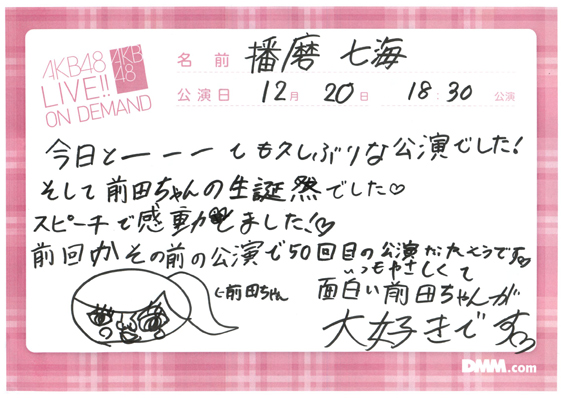 AKB48
LIVE!!
ON DEMAND
AKB
48
名前 播磨 七海
公演日 12月 20日 18:30 公演
今日とーーーても久しぶりな公演でした!
そして前田ちゃんの生誕祭でした♡
スピーチで感動しました!♡
前回かその前の公演で50回目の公演だったそうです♡
いつもやさしくて
面白い前田ちゃんが
大好きです♡
←前田ちゃん
DMM.com